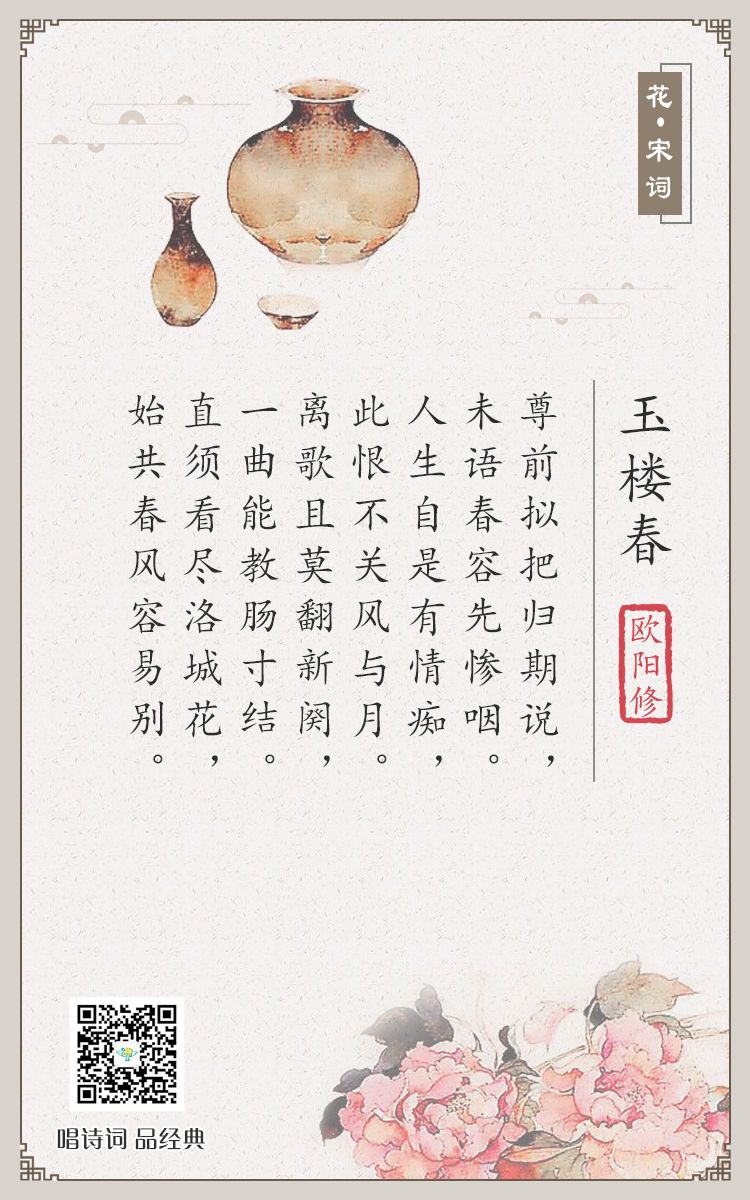 花·宋词
玉楼春
欧阳修
尊前拟把归期说，
未语春容先惨咽。
人生自是有情痴，
此恨不关风与月。
离歌且莫翻新阕，
一曲能教肠寸结。
直须看尽洛城花，
始共春风容易别。
唱诗词 品经典